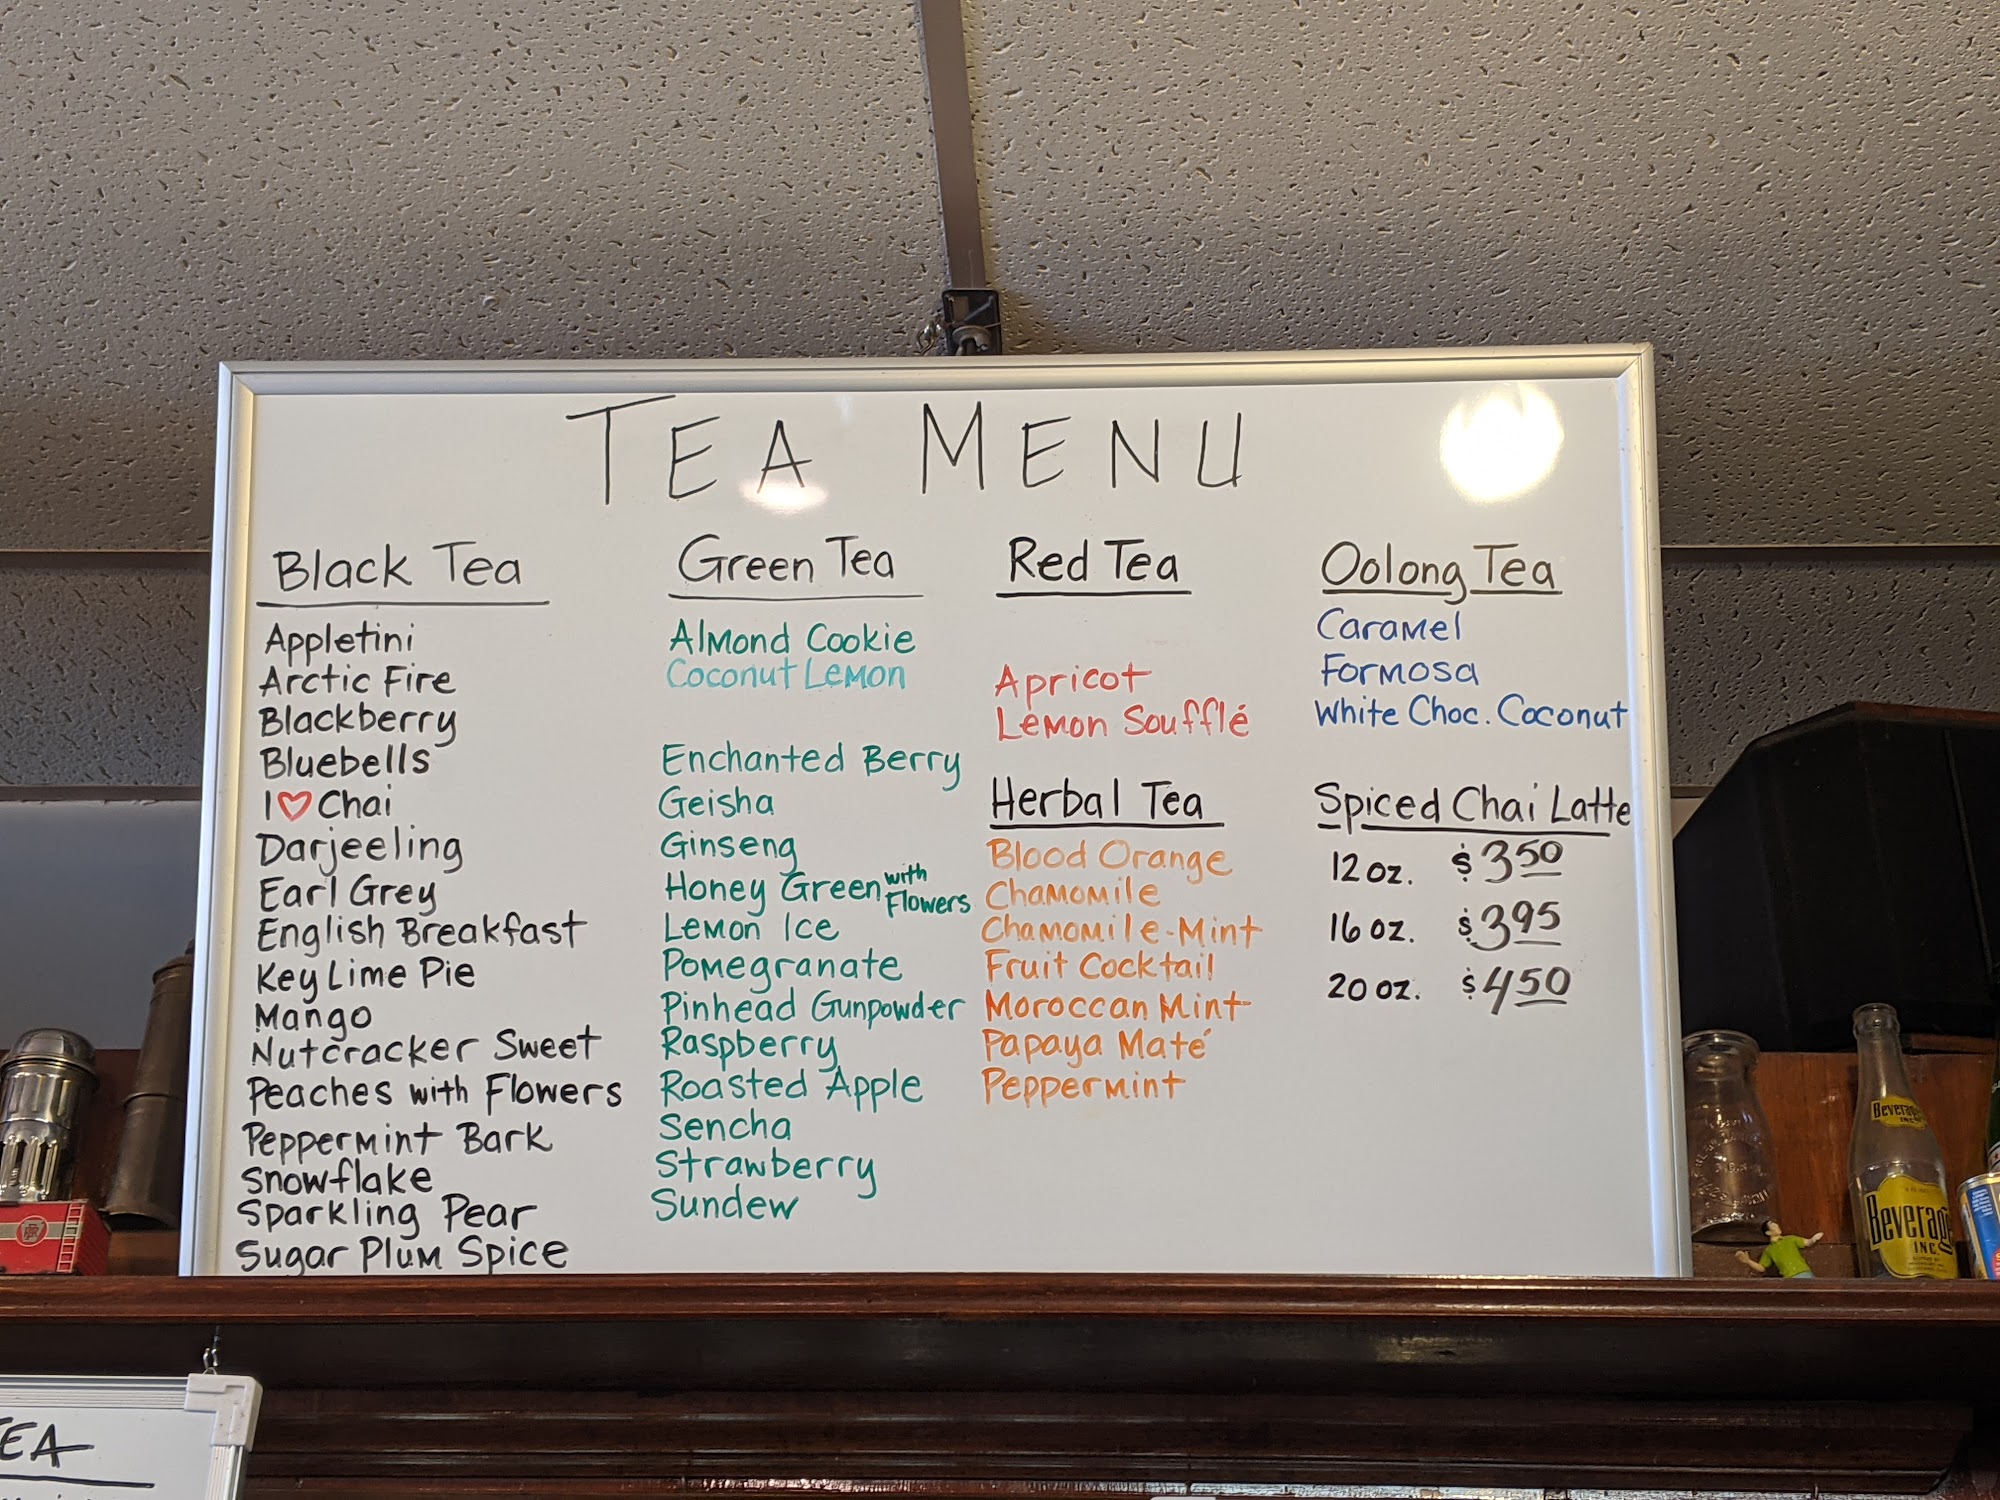 TEA MENU
Black Tea
Appletini
Arctic Fire
Blackberry
Bluebells
I ♡ Chai
Darjeeling
Earl Grey
English Breakfast
Key Lime Pie
Mango
Nutcracker Sweet
Peaches with Flowers
Peppermint Bark
Snowflake
Sparkling Pear
Sugar Plum Spice
Green Tea
Almond Cookie
Coconut Lemon
Enchanted Berry
Geisha
Ginseng
Honey Green with Flowers
Lemon Ice
Pomegranate
Pinhead Gunpowder
Raspberry
Roasted Apple
Sencha
Strawberry
Sundew
Red Tea
Apricot
Lemon Soufflé
Herbal Tea
Blood Orange
Chamomile
Chamomile-Mint
Fruit Cocktail
Moroccan Mint
Papaya Maté
Peppermint
Oolong Tea
Caramel
Formosa
White Choc. Coconut
Spiced Chai Latte
12 oz. $3.50
16 oz. $3.95
20 oz. $4.50
Beverage
INC.
Beverage
INC.
EA